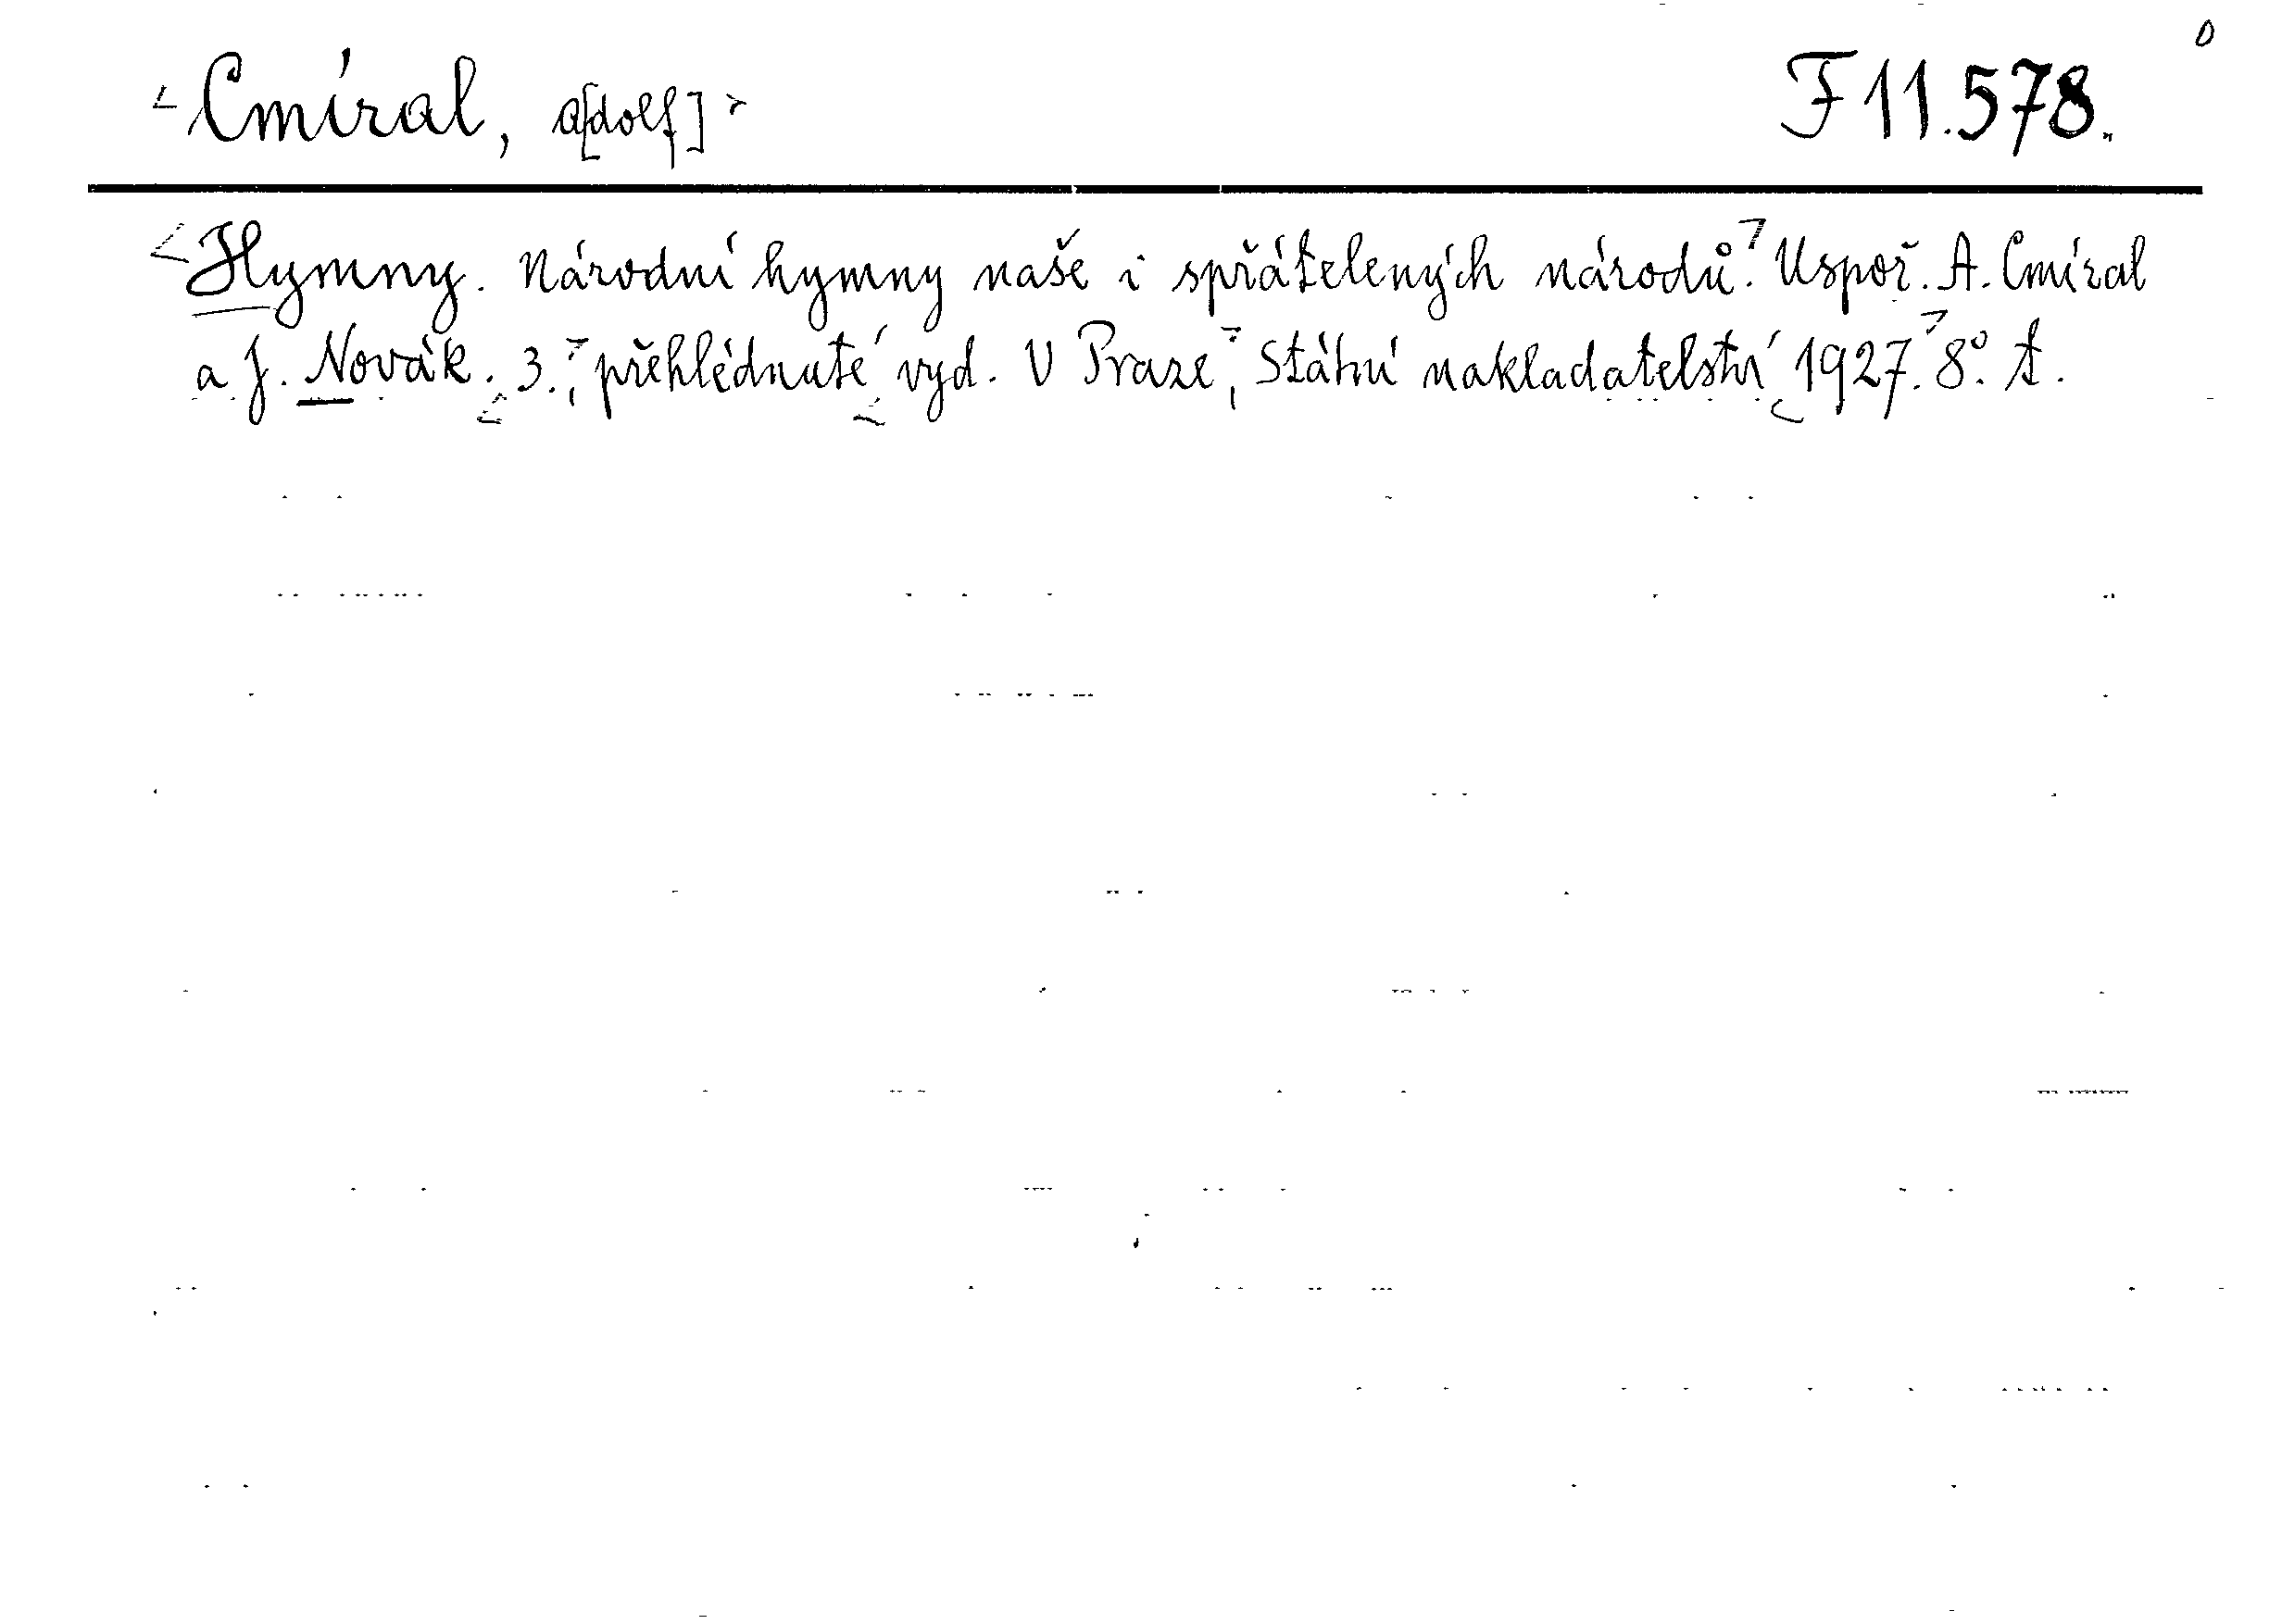 Cmíral, A[dolf] F 11.578.
Hymny. Národní hymny naše i spřátelených národů. Uspoř. A. Cmíral
a J. Novák. 3., přehlédnuté vyd. V Praze, Státní nakladatelství 1927. 8°. A.